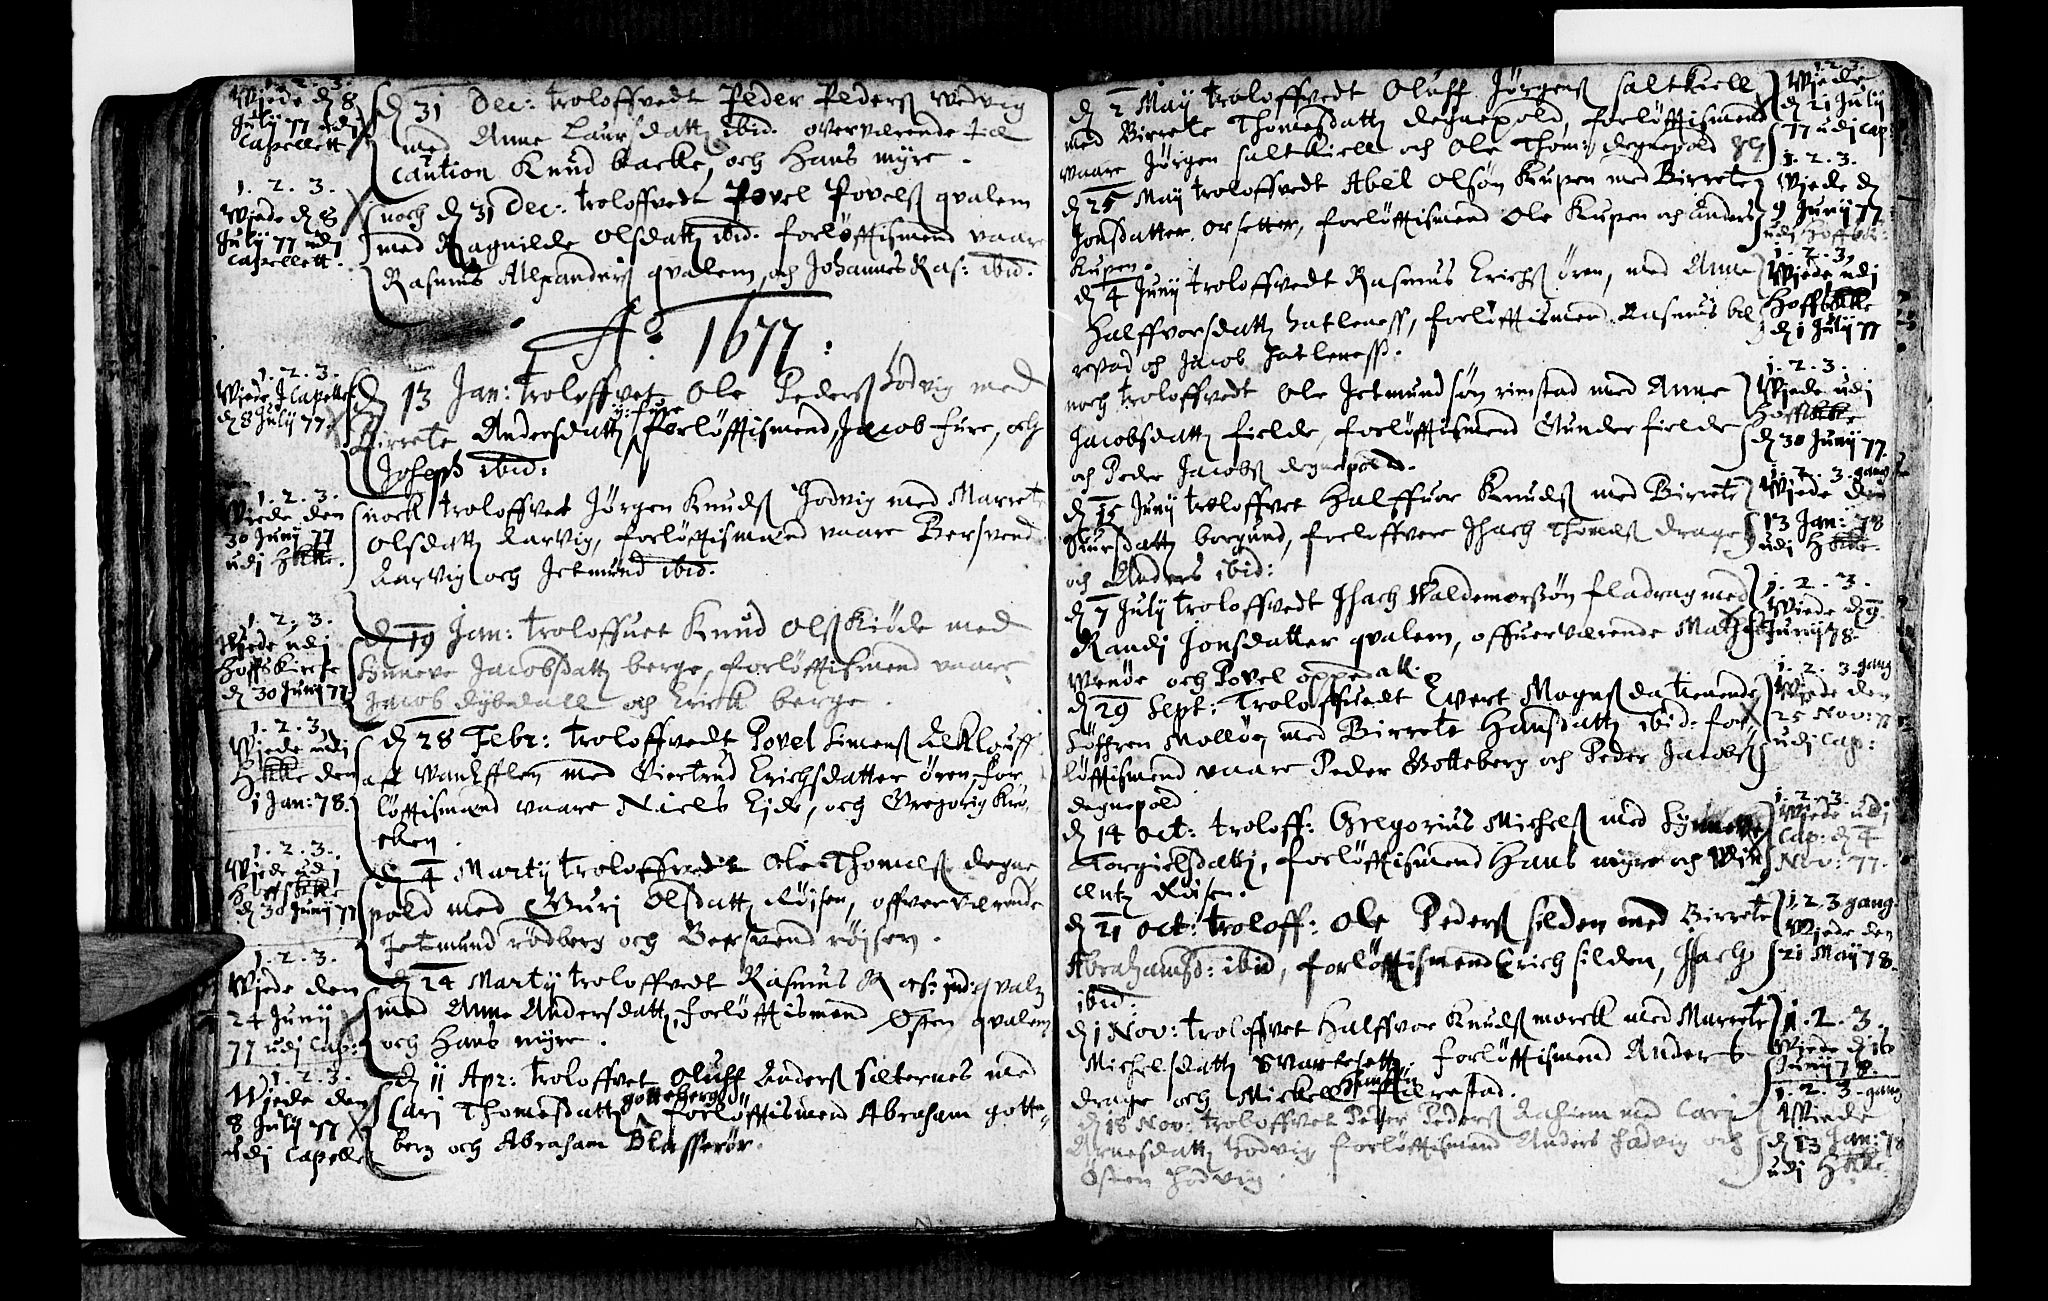 1. 2. 3.
Wjede d. 8
July 77 udj
Capellett
d. 31 Dec: troloffvedt Peder Pederß Wedvig
med Anne Laursdatt ibid. overværende til
caution Knud backe, och Hans myre.
1. 2. 3.
Wjede d. 8
July 77 udj
Capellett.
noch d. 31 Dec: troloffvedt Povel Povelß qvalem
med Ragnilde Olsdatt ibid. forløftismend vaare
Rasmus Allexanderß qvalem, och Johannes Ras: ibid.
Aº 1677:
1. 2. 3.
Wjede J Capelle
d. 8 July 77
d. 13 Jan: troloffvet Ole Pederß hodvig med
Birrete Andersdatt forløftismend, Jacob fure, och
Joseph ibid:
1. 2. 3.
Wjede den
30 Juny 77
udj Hkke.
noch troloffvet Jørgen Knudß Jodvig med Marrete
Olsdatt Aarvig, forløftismend vaare Bersvend
Aarvig och Jetmund ibid.
1. 2. 3.
Wjede udj
Hoffskircke
d. 30 Juny 77
d. 19 Jan: troloffuet Knud Olß Kiøde med
Sunneve Jacobsdatt berge, forløftismend vaare
Jacob dybedall och Erick berge.
1. 2. 3.
Wjede udj
Hkke den
1 Jan: 78.
d. 28 Febr: troloffvedt Povel Simenß
med Giertrud Erichsdatter ören, for
løftismend vaare Niels Eide, och Gregorig Kro
eken.
1. 2. 3.
Wjede udj
d. 30 Juny 77
d. 4 Marty troloffvedt Ole Thomesß degne
pold med Guri Olsdatt Röisen, offverværende
Jetmund rödberg och Bersvend röisen.
1. 2. 3.
Wjede den
24 Juny
77 udj Cap:
d. 24 Marty troloffvedt Rasmus qvalem
med Anne Andersdatt, forløftismend Østen qvalem
och Hans myre.
1. 2. 3.
Wjede den
8 July 77
udj Capelle
d. 11 Apr: troloffvet Oluff Anderß silternes med
gotteberg
Cari Thomesdatt forløftismend Abraham gotte
berg och Abraham Blasserör.
d. 2 May troloffvedt Oluff Jørgenß saltkiell
med Birrete Thomesdatt degnepold, forløftismend
vaare Jørgen saltkiell och Ole Thom: degnepold
1. 2. 3.
Wjede
d. 21 July
77 udj Cap:
d. 25 May troloffvedt Abel Olsøn Kupen med Birrete
Jonsdatter orsetter, forløftismend Ole Kupen och Anders
Kupen.
1. 2. 3.
Wjede d.
9 Juny 77
d. 4 Juny troloffvedt Rasmus Erichß ören, med Anne
Halffvorsdatt hatleness, forløftismend Rasmus bol
rstad och Jacob hatleness.
1. 2. 3.
Wjede udj
Hoffskke
d. 1 July 77
noch troloffvedt Ole Jetmundsøn rimstad med Anne
Jacobsdatt fielde, forløftismend Gunder fielde
och Peder Jacobß degnepold.
1. 2. 3.
Wjede udj
d. 30 Juny 77.
d. 15 Juny troloffvet Halffvor Knudß med Birrete
Siursdatt borgund, forloffvere Jsach Thomesß drage
och Anders ibid:
1. 2. 3. gang
Wjede den
13 Jan: 78
udj Hkke.
d. 7 July troloffvedt Jsach Waldemorssøn fladrag med
Randj Jonsdatter qvalem, offuerværende Mats
Wenöe och Povel oppedall.
1. 2. 3.
Wjede d. 9
Juny 78.
d. 29 Sept: Troloffuedt Evert Mognß da tienende
Söffren Mollöe, med Birrete Hansdatt ibid. for
løftismend vaare Peder Gotteberg och Peder Jacobß
degnepold
1. 2. 3. gang
Wjede den
25 Nov: 77
udj Cap:
d. 14 Oct: troloff: Gregorius Michelß med Synneve
Torgielsdatt, forløftismend Hans myre och Win
centz Röisen.
1. 2. 3.
Wjede udj
Cap: d. 4
Nov: 77.
d. 21 Oct: troloff: Ole Pederß silden med Birrete
Abrahamsd: ibid, forløftismend Erich silden, Jsach
ibid.
1. 2. 3 gang.
Wjede den
21 May 78.
d. 1 Nov: troloffvet Halffvor Knudß morck med Marrete
Michelsdatt Svartesett, forløftismend Anders
drage och Mickell
1. 2. 3.
Wjede d. 16
Juny 78.
d. 18 Nov: troloffvet Peder Pederß Aahiem med Cari
Arnesdatt hodvig forløftismend Anders hodvig och
Østen hodvig.
1. 2. 3. gang
Wjede
d. 13 Jan: 78
udj Hkke.